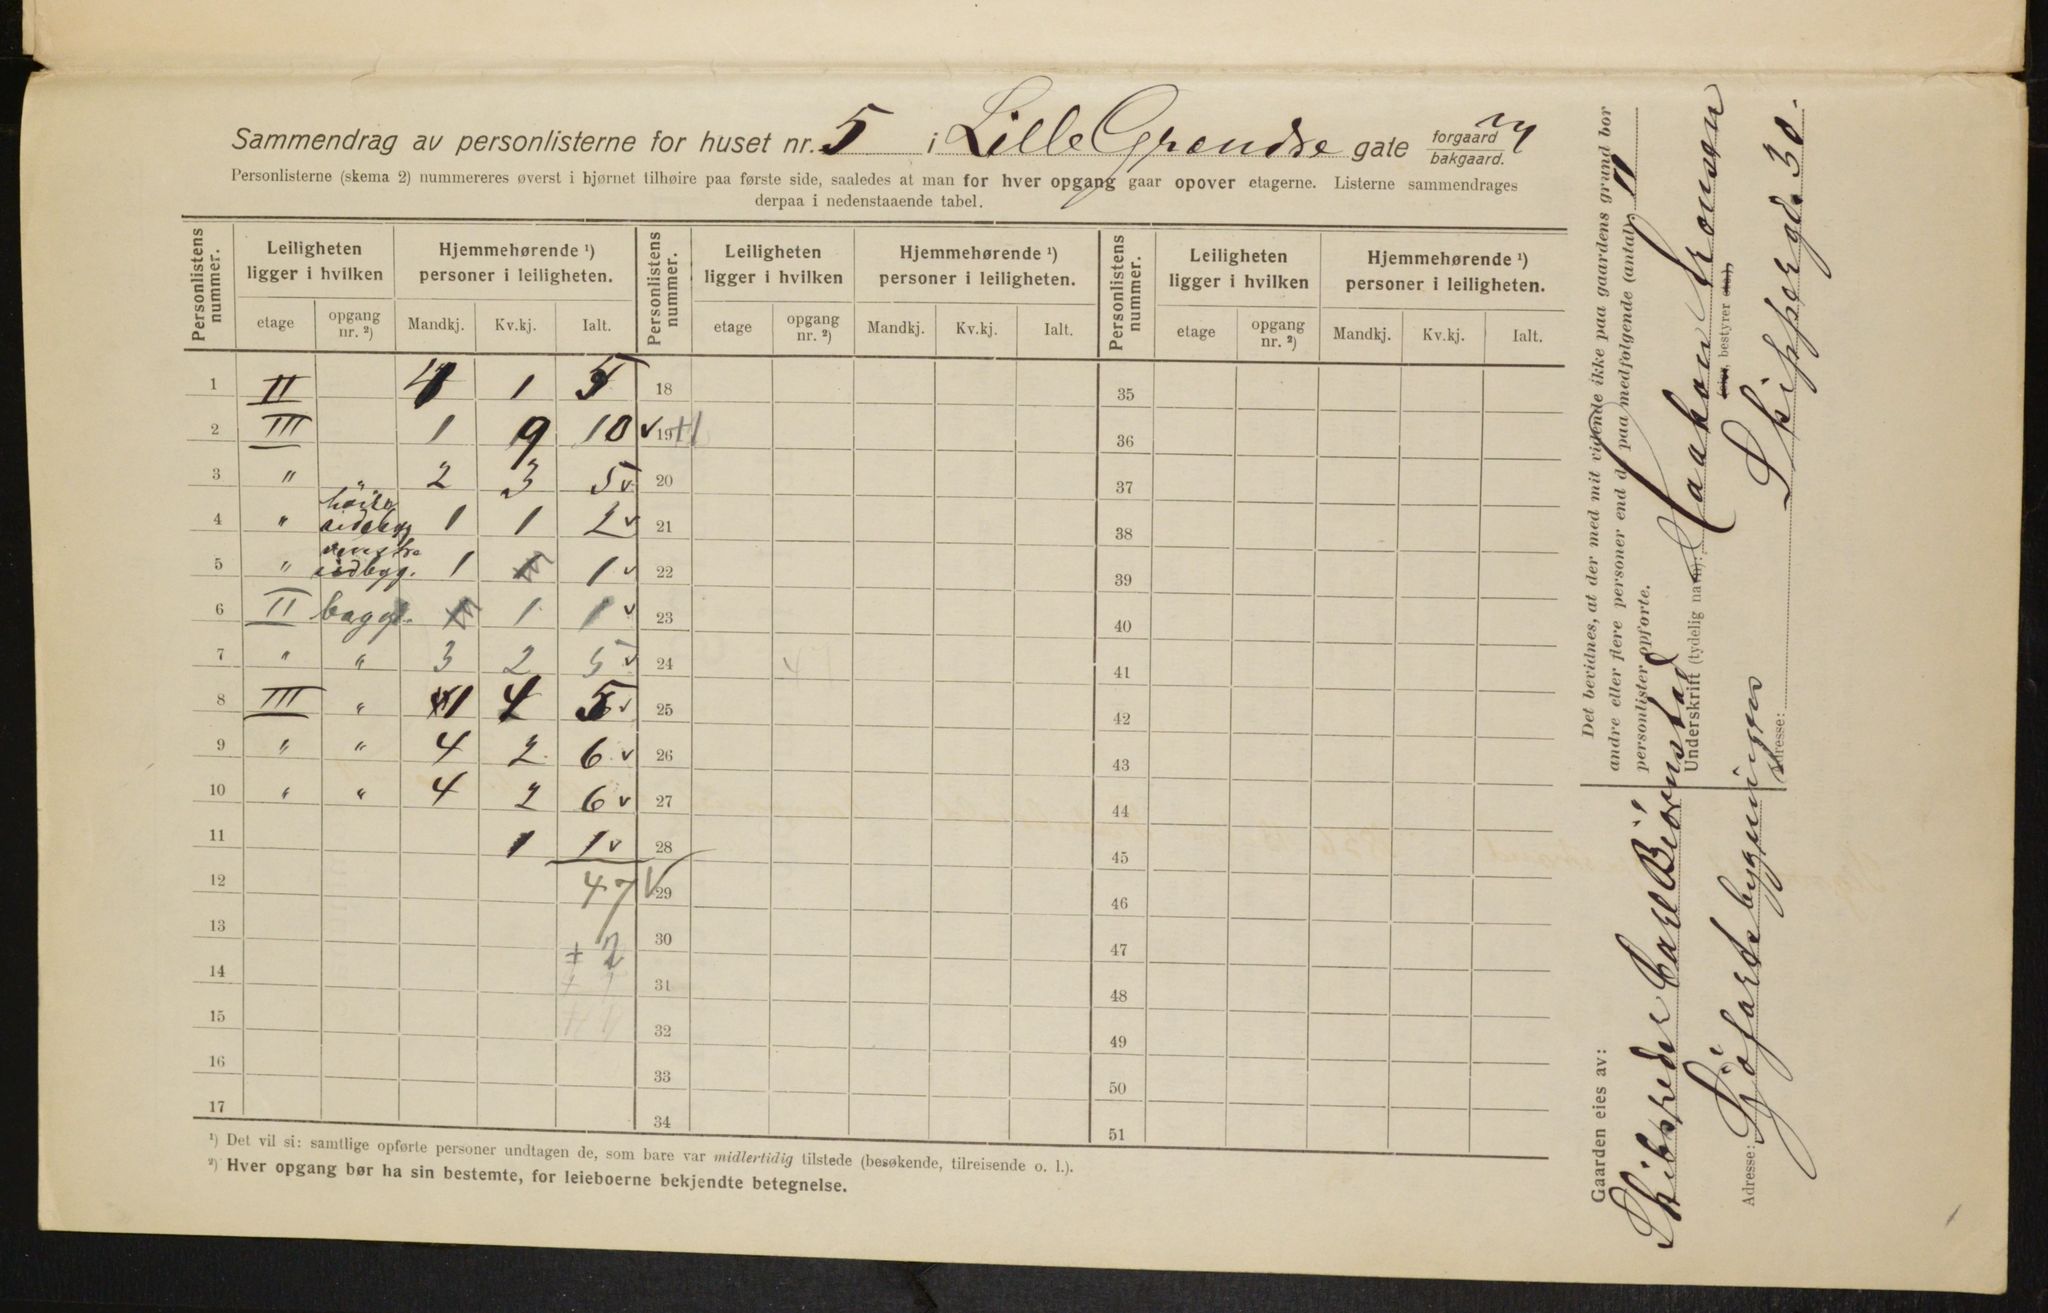 Sammendrag av personlisterne for huset nr. 5 i Lille Grændse gate forgaard bakgaard.
Personlisterne (skema 2) nummereres øverst i hjørnet tilhøire paa første side, saaledes at man for hver opgang gaar opover etagerne. Listerne sammendrages
derpaa i nedenstaaende tabel.
Personlistens nummer. Leiligheten ligger i hvilken Hjemmehørende ¹) personer i leiligheten. Personlistens nummer. Leiligheten ligger i hvilken Hjemmehørende ¹) personer i leiligheten. Personlistens nummer. Leiligheten ligger i hvilken Hjemmehørende ¹) personer i leiligheten.
etage opgang nr. ²) Mandkj. Kv.kj. Ialt. etage opgang nr. ²) Mandkj. Kv.kj. Ialt. etage opgang nr. ²) Mandkj. Kv.kj. Ialt.
1 II 4 1 5 18 35
2 III 1 9 10 v 19 +1 36
3 " 2 3 5 v 20 37
4 " høire sidebyg 1 1 2 v 21 38
5 " venstre sidbyg. 1 1 v 22 39
6 II bagg. 1 1 v 23 40
7 " " 3 2 5 v 24 41
8 III " 1 4 5 v 25 42
9 " " 4 2 6 v 26 43
10 " " 4 2 6 v 27 44
11 1 1 v 28 45
12 47 v 29 46
13 + 2 30 47
14 31 48
15 32 49
16 33 50
17 34 51
¹) Det vil si: samtlige opførte personer undtagen de, som bare var midlertidig tilstede (besøkende, tilreisende o. l.).
²) Hver opgang bør ha sin bestemte, for leieboerne bekjendte betegnelse.
Det bevidnes, at der med mit vidende ikke paa gaardens grund bor
andre eller flere personer end de paa medfølgende (antal) 11
personlister opførte.
Underskrift (tydelig navn): Haakon Aronsen
(eier, bestyrer etc.)
Adresse: Skippergd. 30.
Gaarden eies av:
Skibsreder Carl Bjørnstad
Adresse: Sjöfartsbygningen